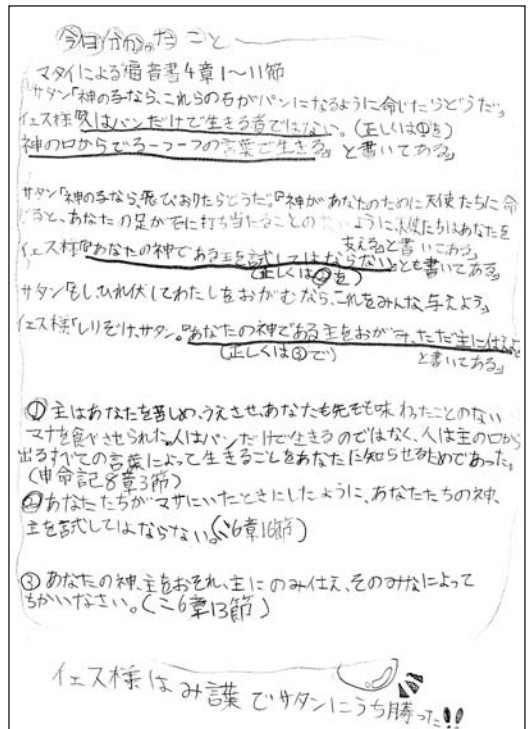 今日分かったこと
マタイによる福音書4章1～11節
サタン「神の子なら、これらの石がパンになるように命じたらどうだ」
イエス様『人はパンだけで生きる者ではない。(正しくは①を)
神の口からでる一つ一つの言葉で生きる』と書いてある」
サタン「神の子なら、飛びおりたらどうだ。『神があなたのために天使たちに命
じると、あなたの足が石に打ち当たることのないように、天使たちはあなたを
支える』と書いてある」
イエス様『あなたの神である主を試してはならない』とも書いてある」
(正しくは②を)
サタン「もし、ひれ伏してわたしをおがむなら、これをみんな与えよう」
イエス様「しりぞけ、サタン。『あなたの神である主をおがみ、ただ主に仕えよ』
(正しくは③で)
と書いてある」
①主はあなたを苦しめ、うえさせ、あなたも先祖も味わったことのない
マナを食べさせられた。人はパンだけで生きるのではなく、人は主の口から
出るすべての言葉によって生きることをあなたに知らせるためであった。
(申命記8章3節)
②あなたたちがマサにいたときにしたように、あなたたちの神、
主を試してはならない。(〃6章16節)
③あなたの神、主をおそれ、主にのみ仕え、そのみなによって
ちかいなさい。(〃6章13節)
イエス様はみ言葉でサタンにうち勝った!!